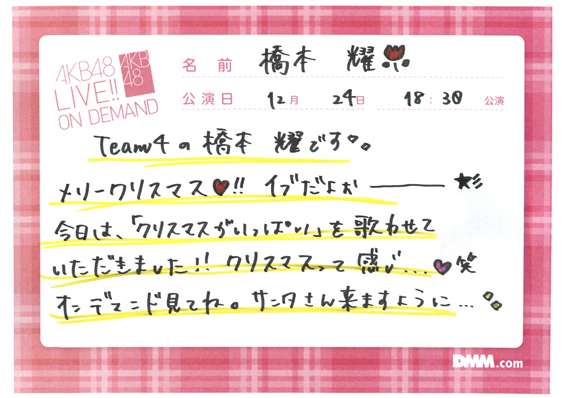 AKB48
LIVE!!
ON DEMAND
AKB
48
名前 橋本 耀
公演日 12月 24日 18:30 公演
Team4の橋本 耀です。
メリークリスマス♥!! イブだよぉ――★彡
今日は、「クリスマスがいっぱい」を歌わせて
いただきました!! クリスマスって感じ...♥笑
オンデマンド見てね。サンタさん来ますように...
DMM.com